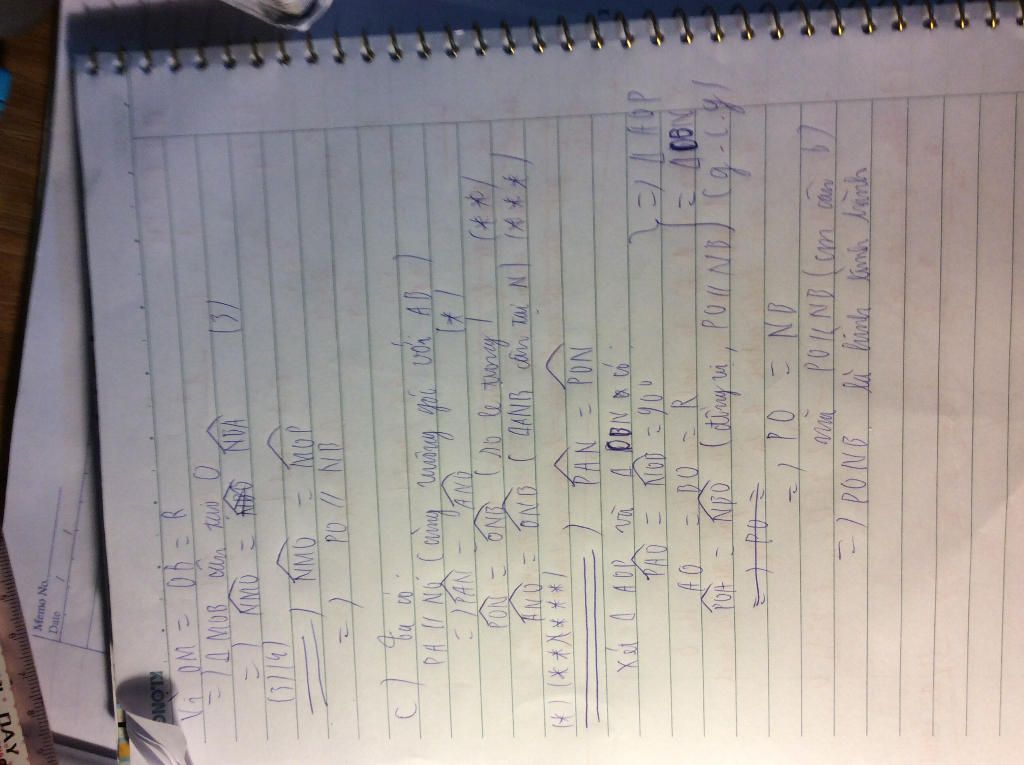 Vì OM = OB = R
=) Δ MOB cân tại O
=) NMO = NBO = NBA (3)
(3)(4)
=) NMO = MOP
=) PO // NB
c) Ta có
PA // NO (cùng vuông góc với AB)
=) PAN = ANO (*)
PON = ONB (so le trong) (**)
ANO = ONB (ΔANB cân tại N) (***)
(*)(**)(***)
=) PAN = PON
Xét Δ AOP và Δ OBN có
PAO = NOB = 90°
AO = BO = R
POA = NBO (đồng vị, PO // NB)
=) Δ AOP
= Δ OBN
(g-c.g)
=) PO =
=) PO = NB
mà PO // NB (cm câu b)
=) PONB là hình bình hành
Memo No.
Date
KLONG